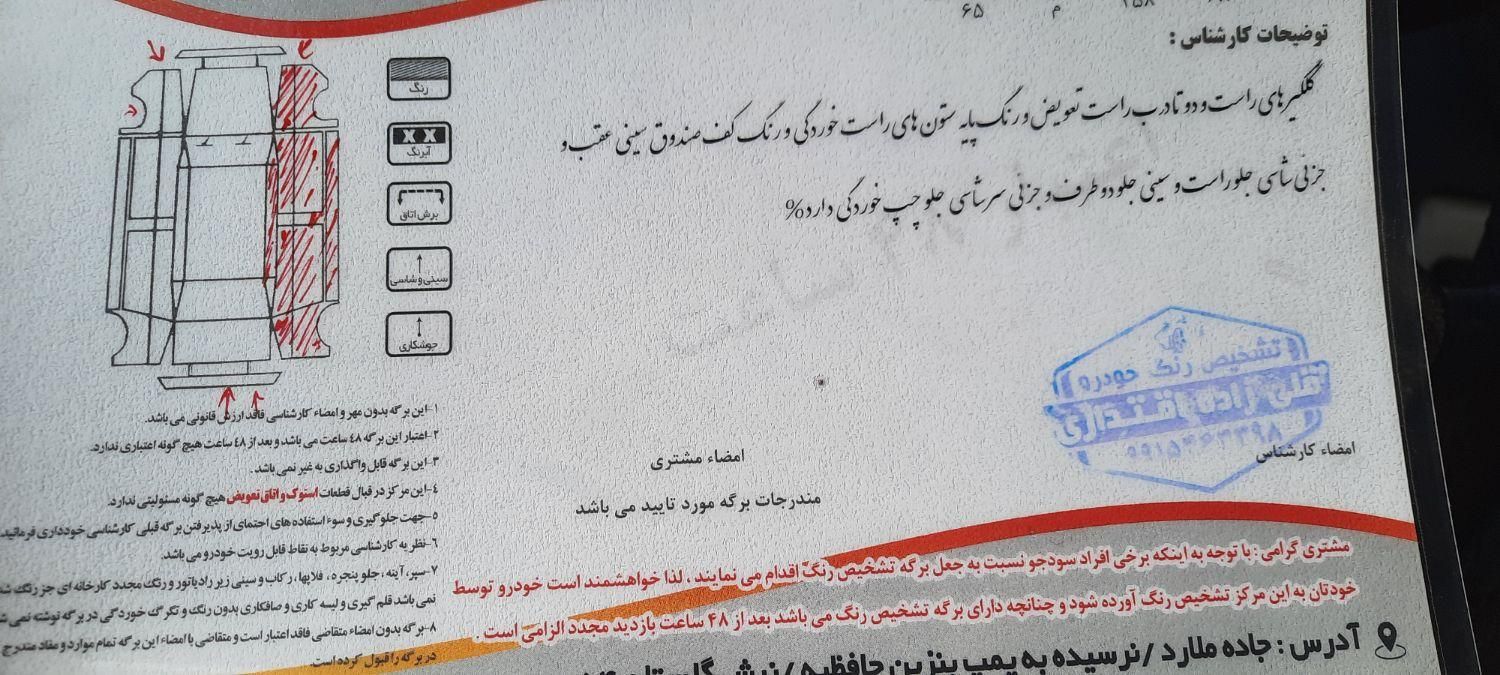 ۶۵ م ۲۵۸
توضیحات کارشناس :
گلگیرهای راست و دو تا درب راست تعویض و رنگ پایه ستون های راست خوردگی و رنگ کف صندوق سینی عقب و
جزئی شاسی جلو راست و سینی جلو دو طرف و جزئی سرشاسی جلو چپ خوردگی دارد%
رنگ
X X
آبرنگ
برش اتاق
سینی و شاسی
جوشکاری
۱-این برگه بدون مهر و امضاء کارشناسی فاقد ارزش قانونی می باشد.
۲-اعتبار این برگه ۴۸ ساعت می باشد و بعد از ۴۸ ساعت هیچ گونه اعتباری ندارد.
۳-این برگه قابل واگذاری به غیر نمی باشد.
۴-این مرکز در قبال قطعات استوک و اتاق تعویض هیچ گونه مسئولیتی ندارد.
۵-جهت جلوگیری و سوء استفاده های احتمای از پذیرفتن برگه قبلی کارشناسی خودداری فرمائید
۶-نظریه کارشناسی مربوط به نقاط قابل رویت خودرو می باشد.
۷-سپر، آینه ، جلو پنجره ، فلاپها ، رکاب و سینی زیر رادیاتور و رنگ مجدد کارخانه ای جز رنگ
نمی باشد قلم گیری و لیسه کاری و صافکاری بدون رنگ و تگرگ خوردگی در برگه نوشته نمی
۸-برگه بدون امضاء متقاضی فاقد اعتبار است و متقاضی با امضاء این برگه تمام موارد و مفاد مندرج
در برگه را قبول کرده است.
تشخیص رنگ خودرو
قلی زاده اقتداری
امضاء کارشناس
امضاء مشتری
مندرجات برگه مورد تایید می باشد
مشتری گرامی : با توجه به اینکه برخی افراد سودجو نسبت به جعل برگه تشخیص رنگ اقدام می نمایند ، لذا خواهشمند است خودرو توسط
خودتان به این مرکز تشخیص رنگ آورده شود و چنانچه دارای برگه تشخیص رنگ می باشد بعد از ۴۸ ساعت بازدید مجدد الزامی است .
آدرس : جاده ملارد / نرسیده به پمپ بنزین حافظیه / نبش گلستان